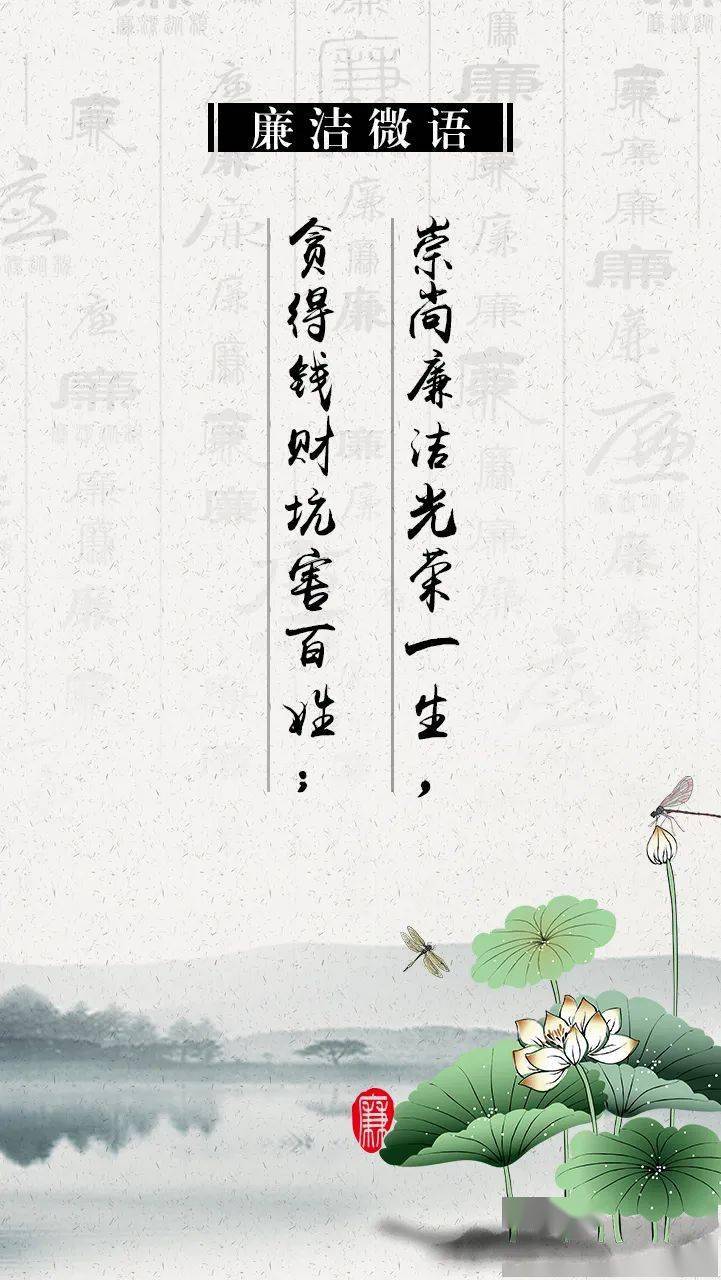 廉洁微语
崇尚廉洁光荣一生，
贪得钱财坑害百姓；
廉